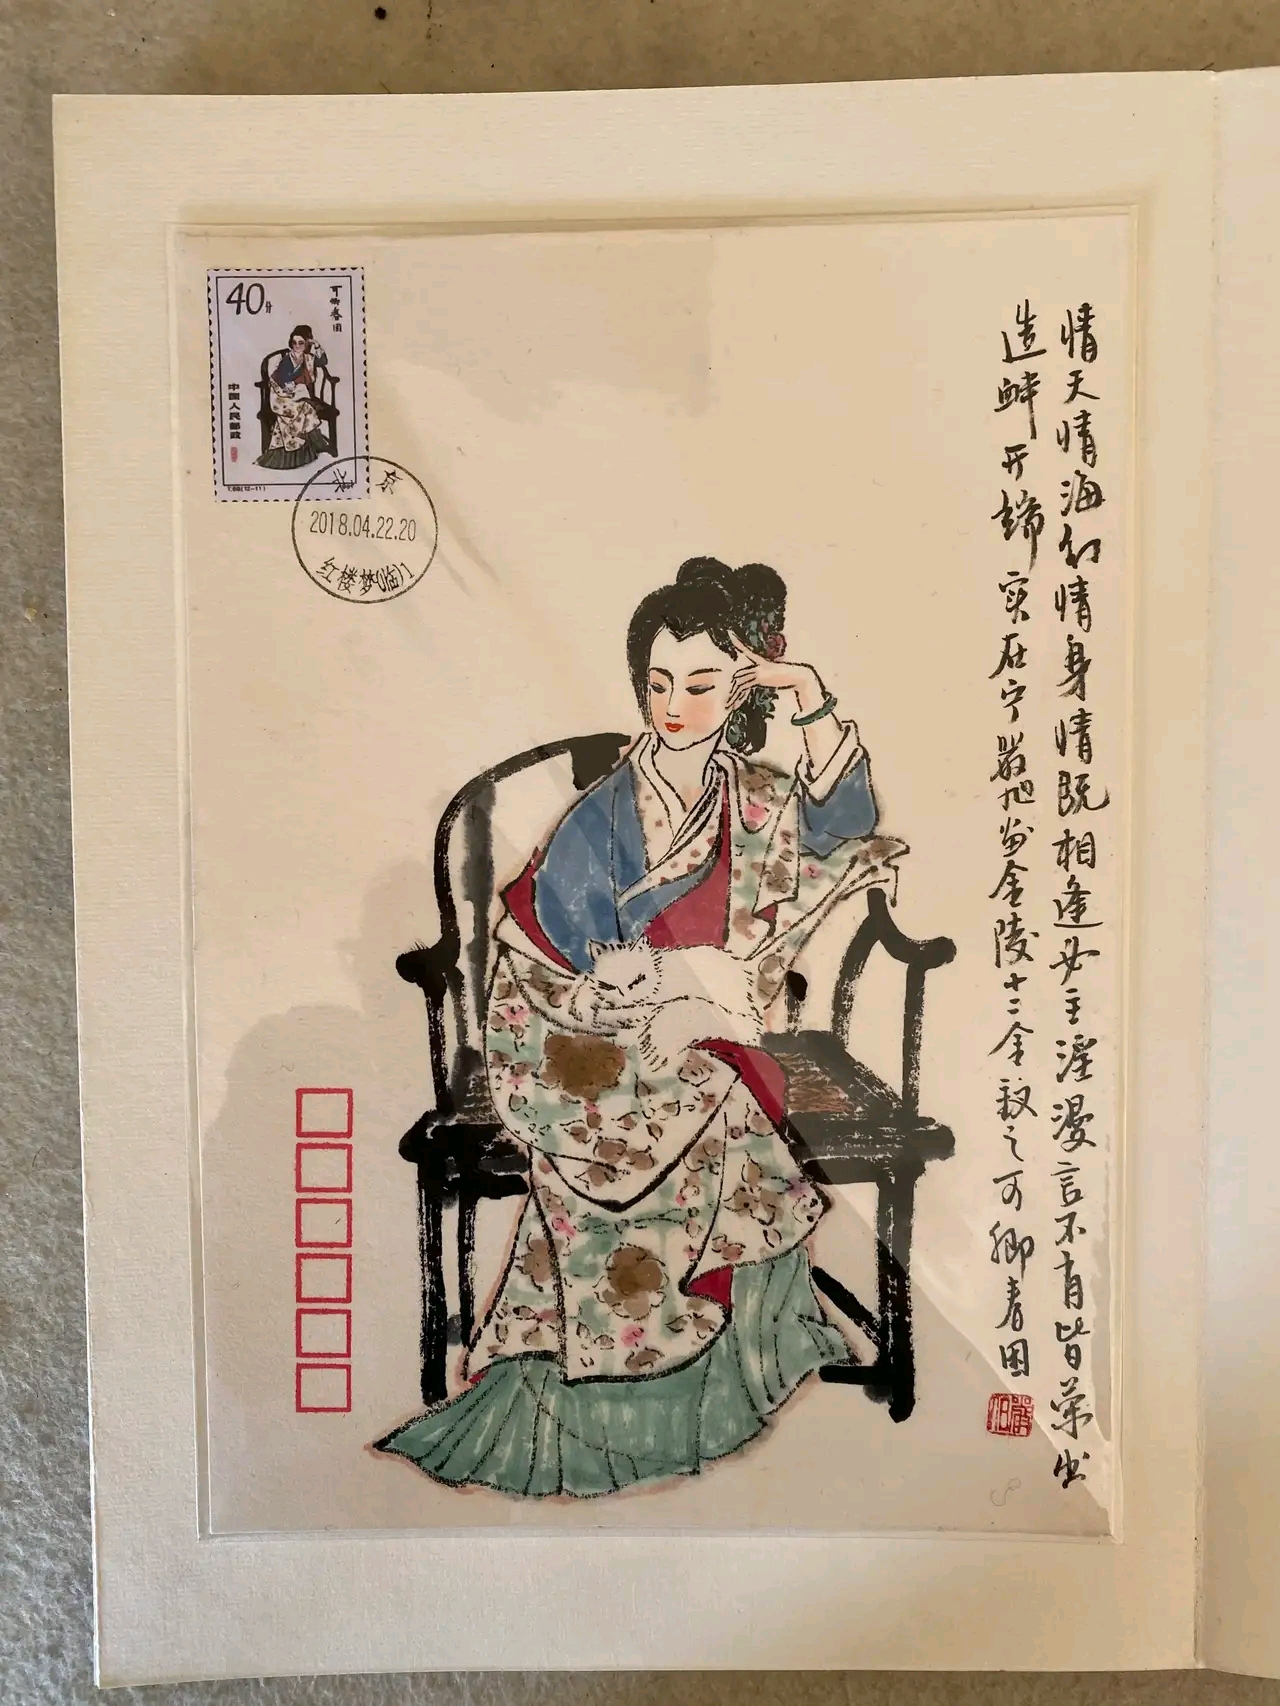 40分
可卿春困
中国人民邮政
T.69(12-11)
北京
2018.04.22.20
红楼梦(临)1
情天情海幻情身情既相逢必主淫漫言不肖皆荣出
造衅开端实在宁 金陵十二金钗之可卿春困